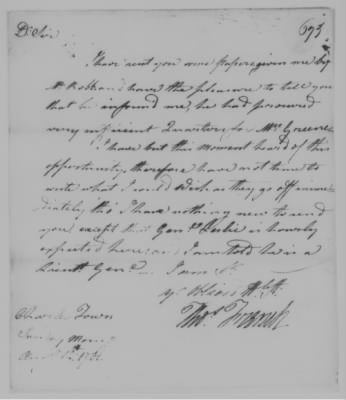 Dr Sir
695
I have sent you some papers given me by
Mr Robb and have the pleasure to tell you
that he informd me, he had procured
very sufficient Quarters for Mrs Greene
I have but this moment heard of this
opportunity, therefore have not time to
write what I could wish as they go off imme-
diately, tho I have nothing new to send
you except that Genl Leslie is hourly
expected here and I am told he is a
Lieutt Genl I am Sr
yr
Thos Farrar
Town
Sunday Morng